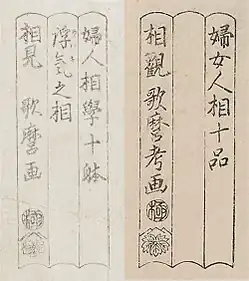 婦人相學十躰
浮氣之相
相見 歌麿画
極
婦女人相十品
相觀歌麿考画
極